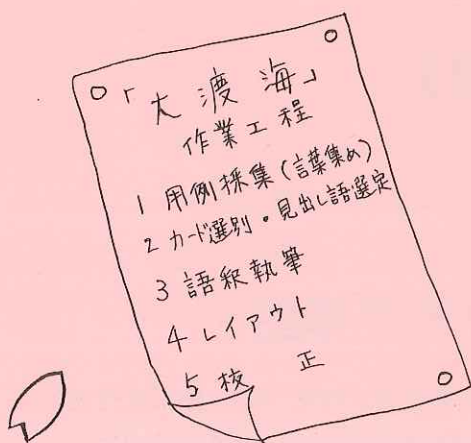 「大渡海」
作業工程
1 用例採集(言葉集め)
2 カード選別・見出し語選定
3 語釈執筆
4 レイアウト
5 校 正